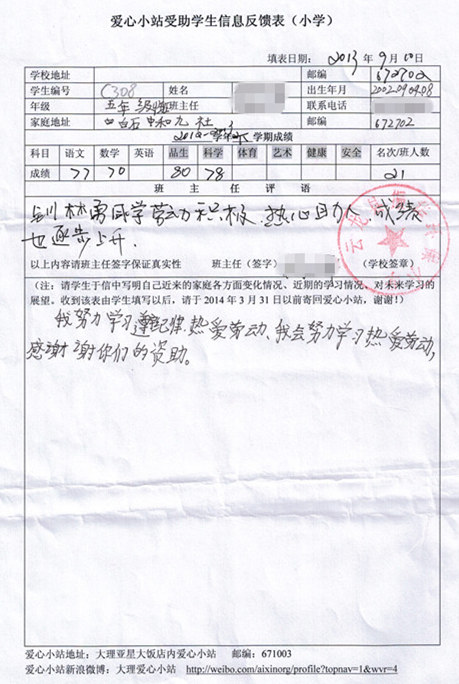 爱心小站受助学生信息反馈表（小学）
填表日期： 2013 年 9 月 10日
学校地址 邮编 672702
学生编号 C308 姓名 出生年月 2002.09.08
年级 五年级 班主任 联系电话
家庭地址 白石中和九社 邮编 672702
学期成绩
科目 语文 数学 英语 品生 科学 体育 艺术 健康 安全 名次/班人数
成绩 77 70 80 78 21
班 主 任 评 语
林勇同学劳动积极、热心助人 成绩
也逐步上升.
以上内容请班主任签字保证真实性 班主任（签字） （学校签章）
（注：请学生于信中写明自己近来的家庭各方面变化情况、近期的学习情况、对未来学习的
展望。收到该表由学生填写以后，请于 2014 年 3 月 31 日以前寄回爱心小站，谢谢!）
我努力学习遵纪律,热爱劳动、我会努力学习热爱劳动,
感谢谢你们的资助。
爱心小站地址：大理亚星大饭店内爱心小站 邮编：671003
爱心小站新浪微博：大理爱心小站 http://weibo.com/aixinorg/profile?topnav=1&wvr=4